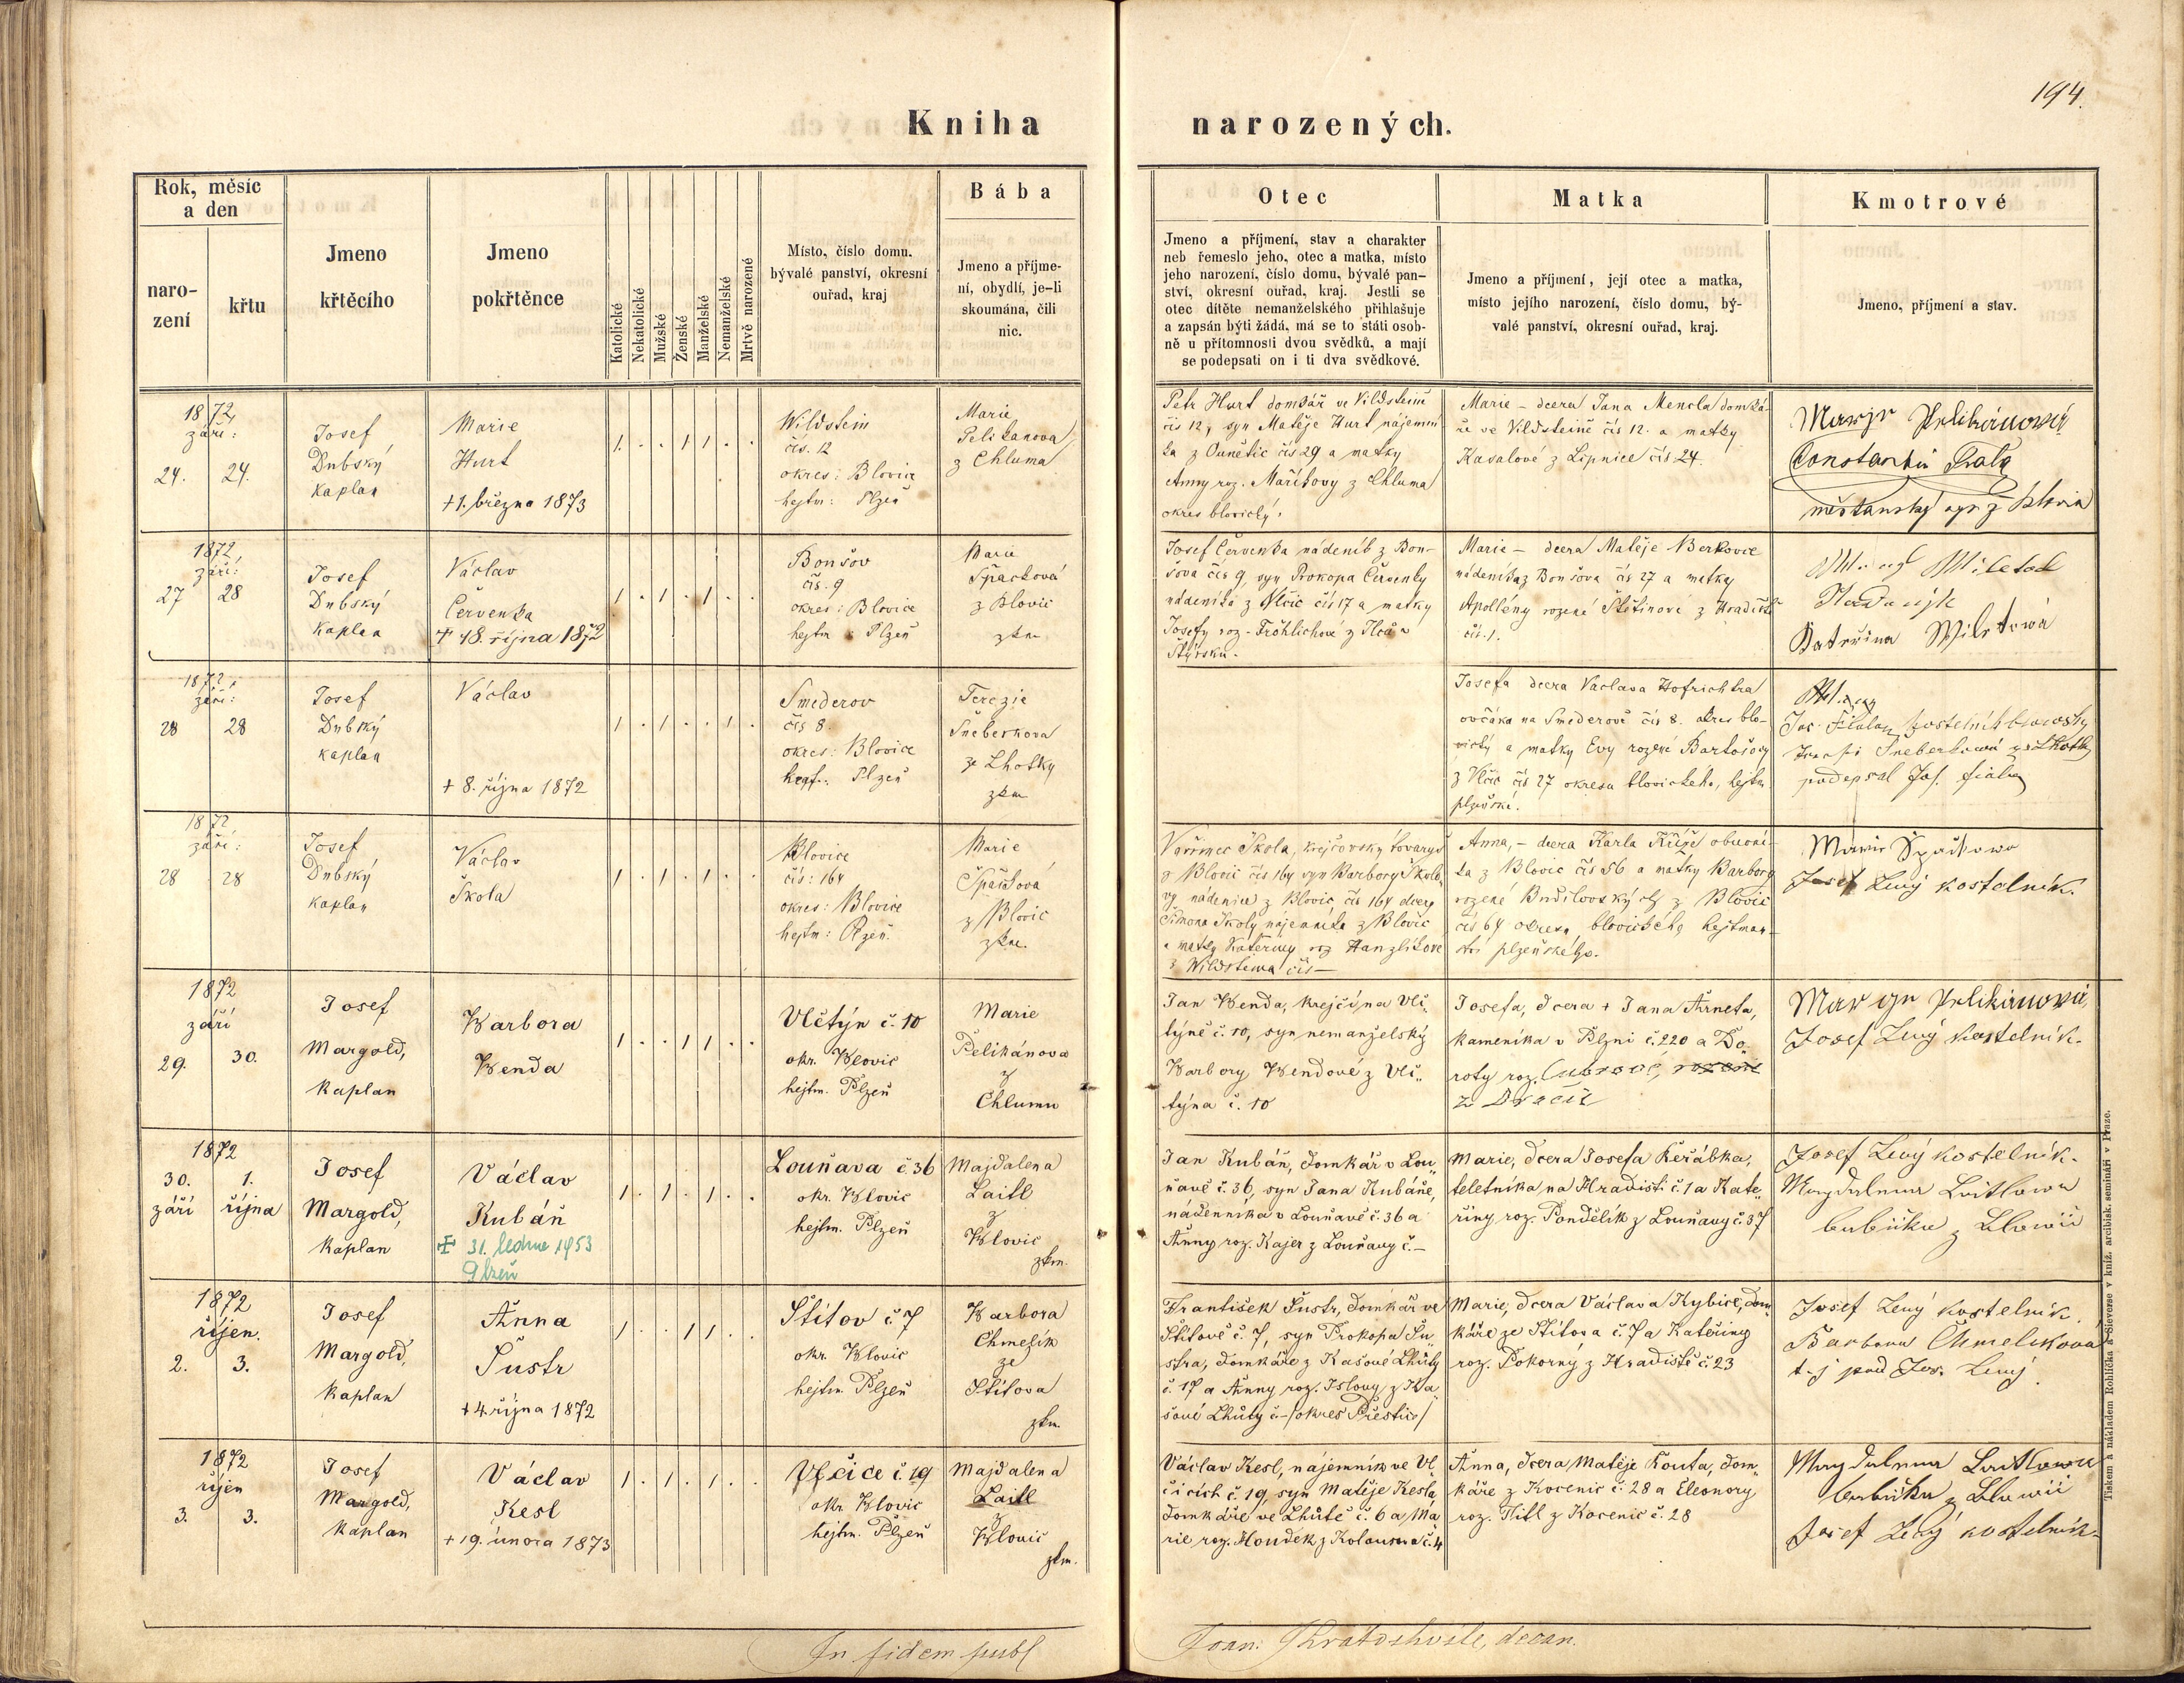 194.
Kniha narozených.
Rok, měsíc
a den
naro-
zení
křtu
Jmeno
křtěcího
Jmeno
pokřtěnce
Katolické
Nekatolické
Mužské
Ženské
Manželské
Nemanželské
Mrtvě narozené
Místo, číslo domu,
bývalé panství, okresní
ouřad, kraj
Bába
Jmeno a příjme-
ní, obydlí, je-li
skoumána, čili
nic.
Otec
Jmeno a příjmení, stav a charakter
neb řemeslo jeho, otec a matka, místo
jeho narození, číslo domu, bývalé pan-
ství, okresní ouřad, kraj. Jestli se
otec dítěte nemanželského přihlašuje
a zapsán býti žádá, má se to státi osob-
ně u přítomnosti dvou svědků, a mají
se podepsati on i ti dva svědkové.
Matka
Jmeno a příjmení, její otec a matka,
místo jejího narození, číslo domu, bý-
valé panství, okresní ouřad, kraj.
Kmotrové
Jmeno, příjmení a stav.
1872
září:
24. 24.
Josef
Dubský
kaplan
Marie
Hurt
+1. března 1873
Wildstein
čís. 12
okres: Blovice
hejtm: Plzeň
Marie
Pelikanova
z Chluma
Petr Hurt domkář ve Vildsteině
čís 12, syn Matěje Hurt nájemní
ka z Ounětic čís 29 a matky
Anny roz. Maříkovy z Chluma
okres blovický.
Marie - dcera Jana Mencla domká-
ře ve Vildsteině čís 12. a matky
Kasalové z Lipnice čís 24.
Maryje Pelikánowá
Constantin
měšťanský z Blovic
1872
září:
27 28
Josef
Dubský
Kaplan
Václav
Červenka
+ 18. října 1872
Bonšov
čís. 9
okres: Blovice
hejtm Plzeň
Marie
Špačková
z Blovic
zkm
Josef Červenka nádeník z Bon-
šova čís 9, syn Prokopa Červenky
nádeníka z Vlčic čís 17 a matky
Josefy roz. Fröhlichové z
Štýrsku.
Marie - dcera Matěje Berkovce
nádeníka z Bonšova čís 27 a matky
Apollény rozené Štětinové z Hradiště
čís. 1.
Kateřina
1872
září:
28 28
Josef
Dubský
kaplan
Václav
+ 8. října 1872
Smederov
čís 8.
okres: Blovice
hejt.: Plzeň
Terezie
Šneberkova
ze Lhotky
zkm
Josefa dcera Václava Hofrichtra
ovčáka na Smederově čís 8. okres blo-
vický a matky Evy rozené Bartošovy
z Vlčic čís 27 okresu blovického, hejtm
plzeňské.
Jos. Fiala, kostelník blovický
Šneberkowá ze Lhotky
podepsal Jos. Fiala
1872
září:
28 28
Josef
Dubský
kaplan
Václav
Škola
Blovice
čís: 164
okres: Blovice
hejtm: Plzeň.
Marie
Špačková
z Blovic
zkm.
Vavřinec Škola, krejčovský tovaryš
z Blovic čís 164 syn Barbory Školo-
vy nádenice z Blovic čís 164 dcery
Šimona Školy nájemníka z Blovic
a matky Kateřiny roz Hanzlíkové
z Wildsteina čís —
Anna, - dcera Karla Kříže obuvní-
ka z Blovic čís 56 a matky Barbory
rozené Budilovských z Blovic
čís 64 okresu blovického hejtman-
ství plzeňského.
Marie Špačkowa
Josef Levý kostelník.
1872
září
29. 30.
Josef
Margold,
kaplan
Barbora
Benda
Vlčtýn č. 10
okr. Blovic
hejtm. Plzeň
Marie
Pelikánova
z
Chlumu
Jan Benda, krejčí na Vlč
týně č. 10, syn nemanželský
Barbory Bendové z Vlč„
týna č. 10
Josefa, dcera + Jana Arneta,
kameníka v Plzni č. 220 a Do„
roty roz. rozené
z
Maryje Pelikánowá,
Josef Levý kostelník.
1872
30. 1.
září října
Josef
Margold,
kaplan
Václav
Kubáň
31. ledna 1953
Plzeň
Louňava č 36
okr. Blovic
hejtm. Plzeň
Majdalena
Laitl
z
Blovic
zkm.
Jan Kubáň, domkář v Lou„
ňavě č. 36, syn Jana Kubáňe,
nádenníka v Louňavě č. 36 a
Anny roz. Kajer z Louňavy č. —
Marie, dcera Josefa Keřábka,
teletníka na Hradišti č. 1 a Kate„
řiny roz. Pondělík z Louňavy č. 37
Josef Levý kostelník.
Magdalena Laitlowa
babička z Blowic
1872
říjen.
2. 3.
Josef
Margold,
kaplan
Anna
Šustr
+4 října 1872
Štítov č. 7
okr. Blovic
hejtm. Plzeň
Barbora
Chmelík
ze
Štítova
zkm.
František Šustr, domkář ve
Štítově č. 7, syn Prokopa Šu„
stra, domkáře z Kasové Lhůty
č. 17 a Anny roz. Islovy z Ka„
sové Lhůty č. — /okres Přeštice/
Marie, dcera Václava Kybice, dom„
káře ze Štítova č. 7 a Kateřiny
roz. Pokorný z Hradiště č. 23
Josef Levý kostelník.
Barbora Chmelíková
t. j pod Jos. Levý
1872
říjen
3. 3.
Josef
Margold,
kaplan
Václav
Kesl
+ 19. února 1873
Vlčice č. 19
okr. Blovic
hejtm. Plzeň
Majdalena
Laitl
z
Blovic
zkm.
Václav Kesl, nájemník ve Vl„
čicích č. 19, syn Matěje Kesla,
domkáře ve Lhůtě č. 6 a Ma„
rie roz. Houdek z Kolausova č. 4
Anna, dcera Matěje Kouta, dom„
káře z Kocenic č. 28 a Eleonory
roz. Titl z Kocenic č. 28
Magdalena Laitlowa
babička z Blowic
Josef Levý kostelník.
In fidem publ
Joan: Kratochvile, decan.
Tiskem a nákladem Rohlíčka a Sieverse v kníž. arcibisk. semináři v Praze.